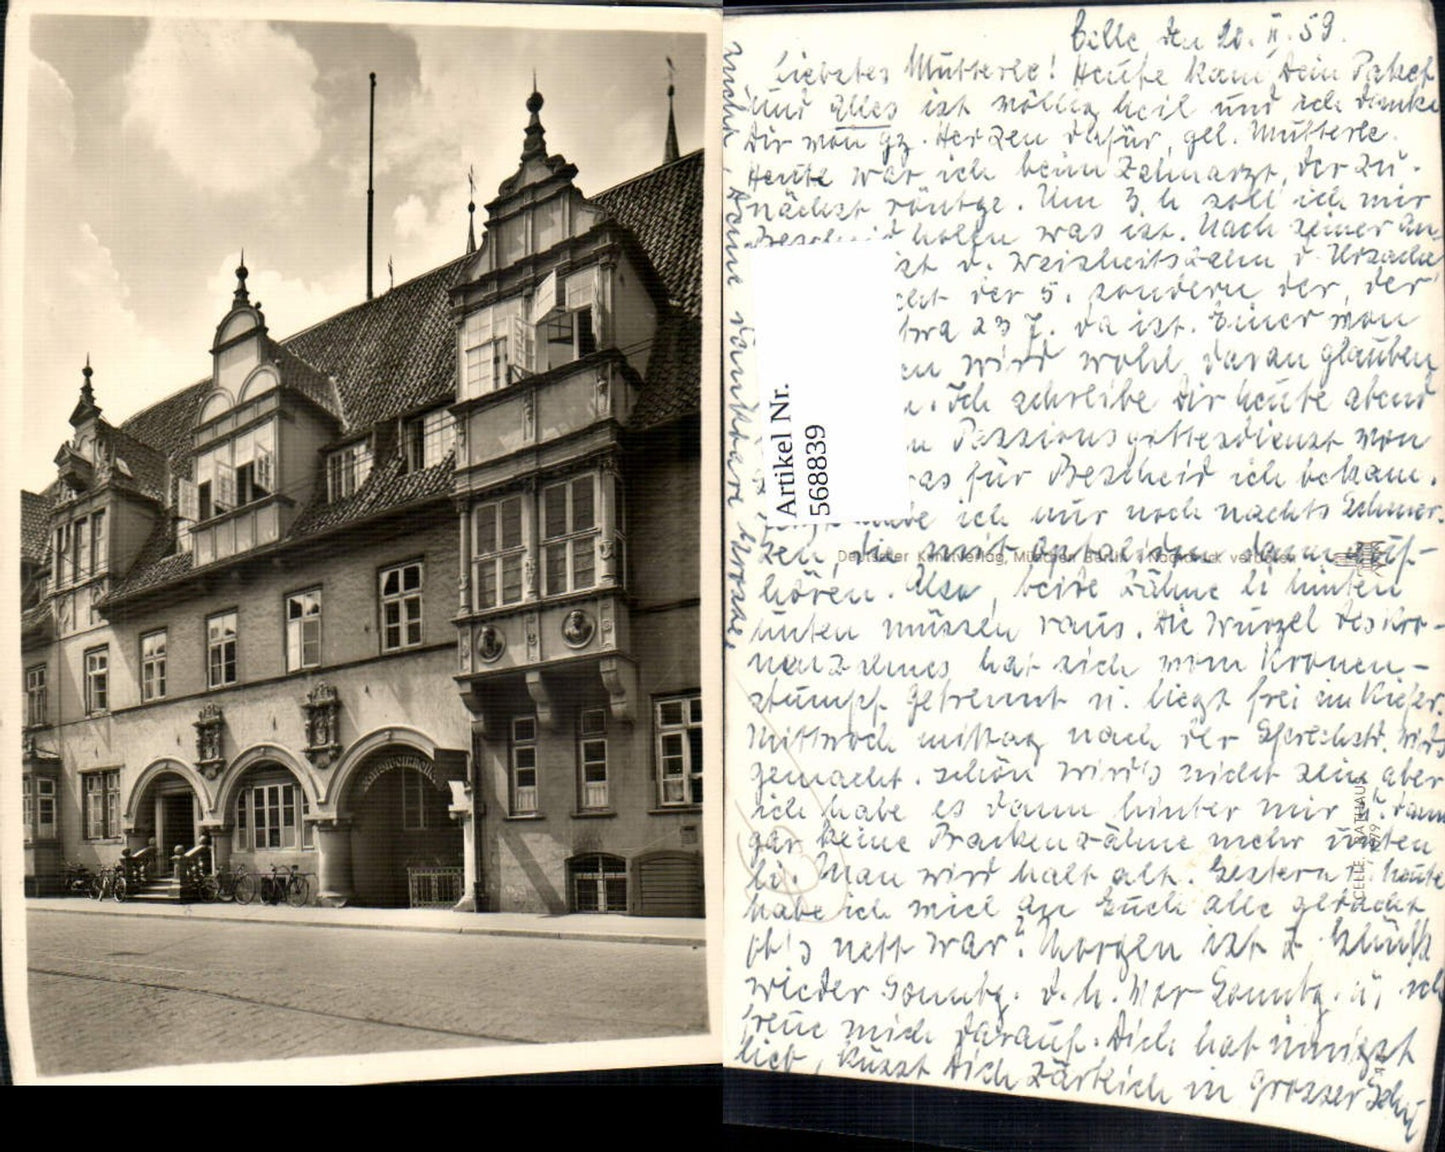 Celle, den 20. II. 59.
Liebstes Mutterle! Heute kam Dein Paket
und alles ist völlig heil und ich danke
Dir von gz. Herzen dafür, gel. Mutterle.
Heute war ich beim Zahnarzt, der zu-
nächst röntge. Um 3 h soll ich mir
Bescheid holen was ist. Nach seiner An-
ist d. Weisheitszahn d. Ursache
der 5. sondern der, der
7. da ist. Einer von
wird wohl daran glauben
Ich schreibe Dir heute abend
Passionsgottesdienst von
was für Bescheid ich bekam.
habe ich nur noch nachts Schmer-
zen, die mit dann auf-
hören. Also, beide Zähne li hinten
unten müssen raus. Die Wurzel des Kro-
nenzahnes hat sich vom Kronen-
stumpf getrennt u. liegt frei im Kiefer.
Mittwoch mittag nach der Sprechstd. wird's
gemacht. Schön wird's nicht sein aber
ich habe es dann hinter mir u. dann
gar keine Backenzähne mehr unten
li. Man wird halt alt. Gestern u. heute
habe ich viel an Euch alle gedacht
ob's nett war? Morgen ist z. Glück
wieder Sonntg. d. h. Vor-Sonntg. u. ich
freue mich darauf. Dich hat innigst
lieb, küsst Dich zärtlich in grosser Sehn-
sucht, Deine dankbare Grosse.
Artikel Nr.
568839
Deutscher Kunstverlag, München Berlin · Nachdruck verboten
CELLE, RATHAUS